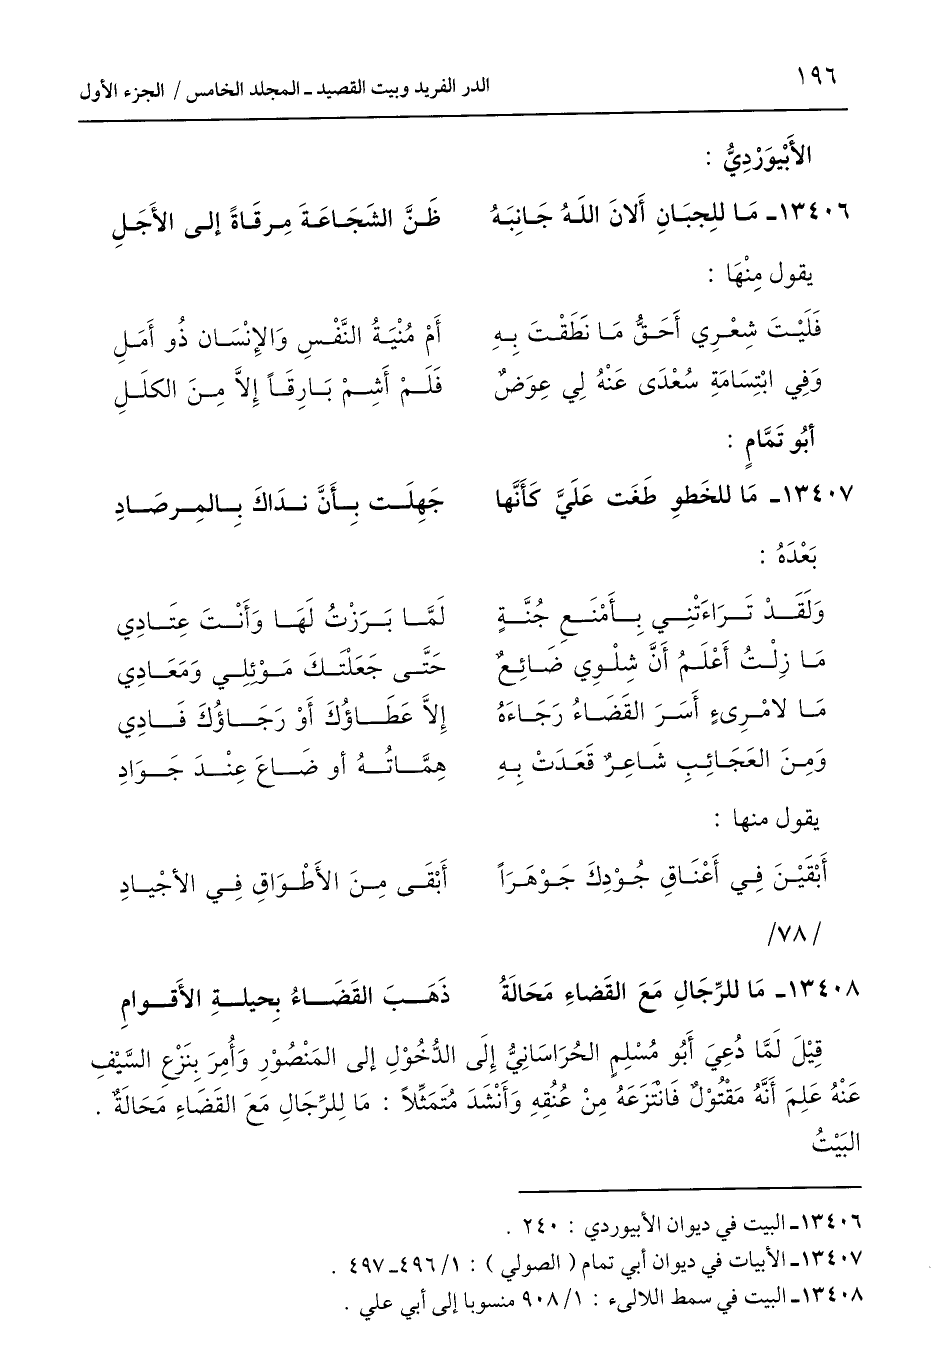 ١٩٦ الدر الفريد وبيت القصيد ـ المجلد الخامس / الجزء الأول
الأَبْيوَرْدِيُّ :
١٣٤٠٦ـ مَا لِلجبَانِ أَلانَ اللهُ جَانِبَهُ ظَنَّ الشَّجَاعَةَ مِرقَاةً إلى الأَجَلِ
يقول مِنْهَا :
فَلَيْتَ شِعْرِي أَحَقٌّ مَا نَطَقْتَ بِهِ أَمْ مُنْيَةُ النَّفْسِ وَالإِنْسَان ذُو أَمَلِ
وَفِي ابْتِسَامَةِ سُعْدَى عَنْهُ لِي عِوَضٌ فَلَمْ أَشِمْ بَارِقَاً إِلاَّ مِنَ الكلَلِ
أَبُو تَمَّامٍ :
١٣٤٠٧ـ مَا للخَطوِ طَغَت عَلَيَّ كَأَنَّها جَهِلَت بِأَنَّ نداكَ بِالمِرصَادِ
بَعْدَهُ :
وَلَقَدْ تَرَاءَتْنِي بِأَمْنَعِ جُنَّةٍ لَمَّا بَرَزْتُ لَهَا وَأَنْتَ عِتَادِي
مَا زِلْتُ أَعْلَمُ أَنَّ شِلْوِي ضَائِعٌ حَتَّى جَعَلْتكَ مَوْئِلِي وَمَعَادِي
مَا لامْرِىءٍ أَسَرَ القَضَاءُ رَجَاءَهُ إِلاَّ عَطَاؤُكَ أَوْ رَجَاؤُكَ فَادِي
وَمِنَ العَجَائِبِ شَاعِرٌ قَعَدَتْ بِهِ هِمَّاتُهُ أو ضَاعَ عِنْدَ جَوَادِ
يقول منها :
أَبْقَيْنَ فِي أَعْنَاقِ جُوْدِكَ جَوْهَرَاً أَبْقَى مِنَ الأَطْوَاقِ فِي الأجْيادِ
/٧٨/
١٣٤٠٨ـ مَا للرِّجَالِ مَعَ القَضاءِ مَحَالَةُ ذَهَبَ القَضَاءُ بحيلةِ الأقْوامِ
قِيْلَ لَمَّا دُعِيَ أَبُو مُسْلِمٍ الخُرَاسَانِيُّ إِلَى الدُّخُوْلِ إلى المَنْصُوْرِ وَأُمِرَ بِنَزْعِ السَّيْفِ
عَنْهُ عَلِمَ أَنَّهُ مَقْتُوْلٌ فَانْتَزَعَهُ مِنْ عُنُقِهِ وَأَنْشَدَ مُتَمَثِّلاً : مَا لِلرِّجَالِ مَعَ القَضَاءِ مَحَالَةٌ .
البَيْتُ
١٣٤٠٦ـ البيت في ديوان الأبيوردي : ٢٤٠ .
١٣٤٠٧ـ الأبيات في ديوان أبي تمام ( الصولي ) : ١/ ٤٩٦ـ٤٩٧ .
١٣٤٠٨ـ البيت في سمط اللالىء : ١/ ٩٠٨ منسوبا إلى أبي علي .